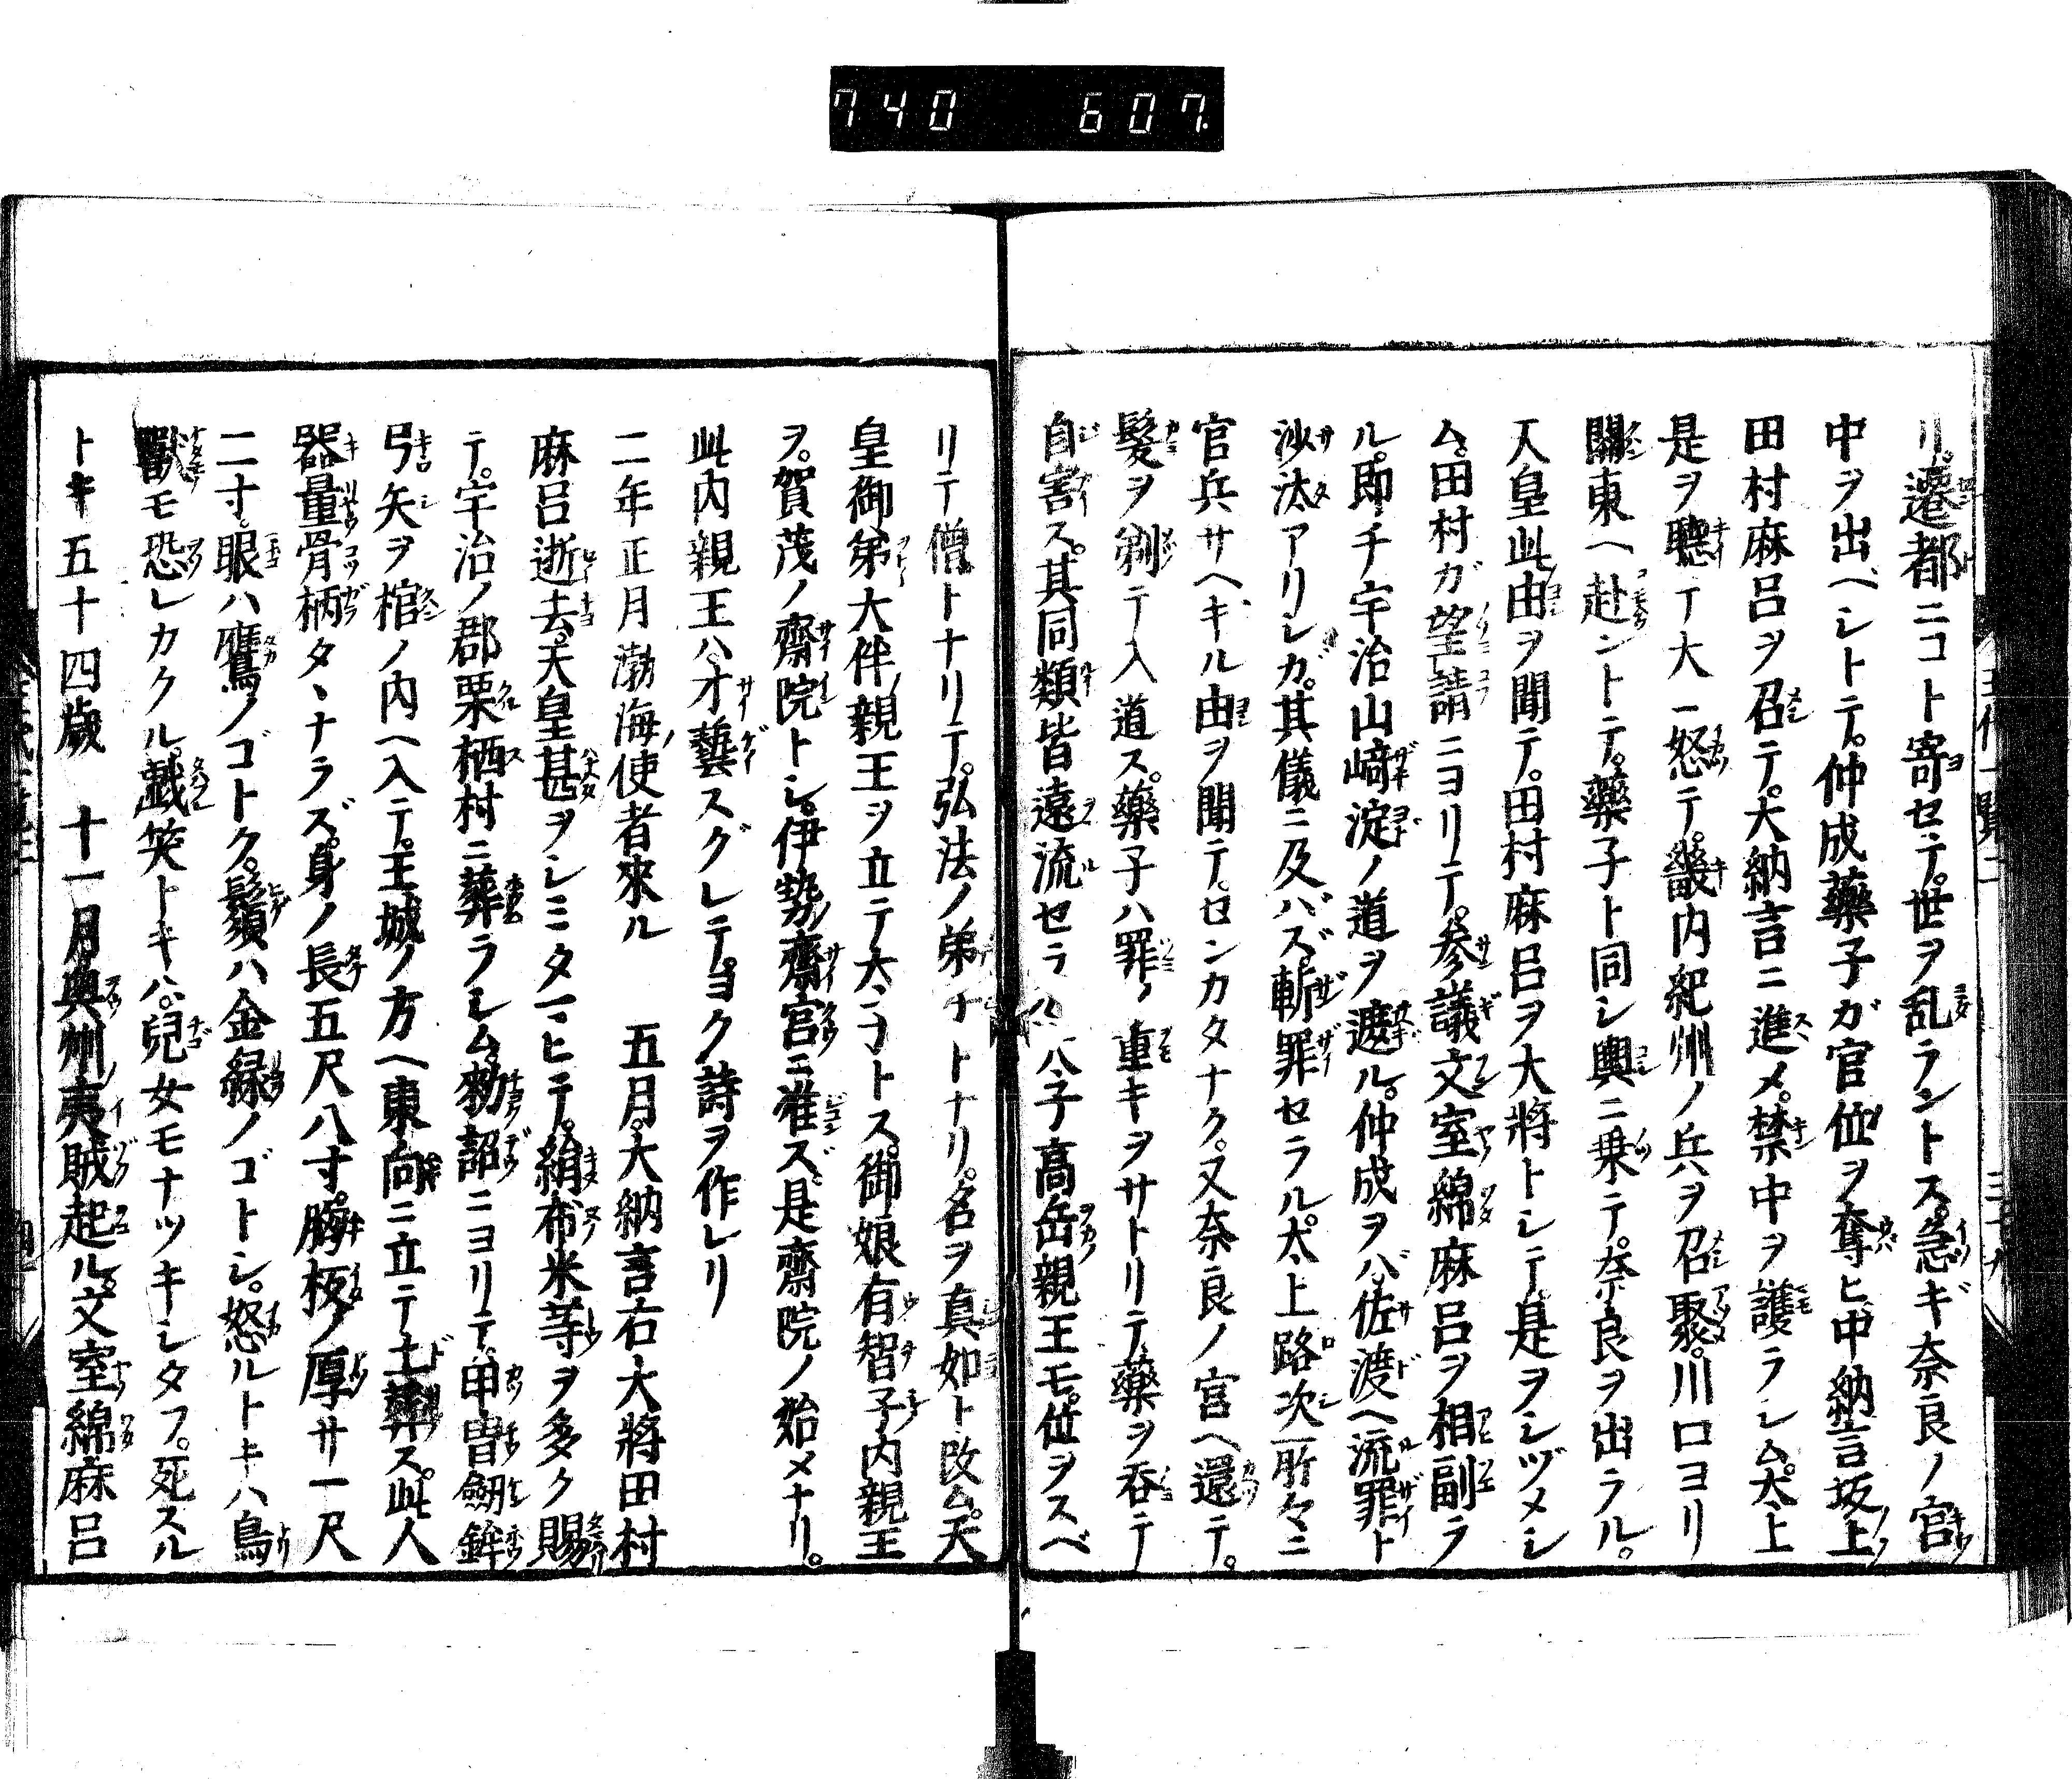 740 607.
リ。遷都ニコト寄セテ。世ヲ乱ラントス。急ギ奈良ノ宮
中ヲ出ベシトテ。仲成藥子ガ官位ヲ奪ヒ。中納言坂上
田村麻呂ヲ召テ。大納言ニ進メ。禁中ヲ護ラシム。太上
是ヲ聽テ大ニ怒テ。畿内紀州ノ兵ヲ召聚。川口ヨリ
關東ヘ赴ントテ。藥子ト同シ輿ニ乗テ。奈良ヲ出ラル。
天皇此由ヲ聞テ。田村麻呂ヲ大將トシテ。是ヲシヅメシ
ム。田村ガ望請ニヨリテ。参議文室綿麻呂ヲ相副ラ
ル。即チ宇治山崎淀ノ道ヲ遮ル。仲成ヲバ。佐渡ヘ流罪ト
沙汰アリシガ。其儀ニ及バズ。斬罪セラル。太上路次所々ニ
官兵サヘギル由ヲ聞テ。センカタナク。又奈良ノ宮ヘ還テ。
髮ヲ剃テ入道ス。藥子ハ罪ノ重キヲサトリテ。藥ヲ呑テ
自害ス。其同類皆遠流セラル 太子高岳親王モ。位ヲスベ
リテ僧トナリテ。弘法ノ弟子トナリ。名ヲ真如ト改ム。天
皇御弟大伴親王ヲ立テ太子トス。御娘有智子内親王
ヲ。賀茂ノ齋院トシ。伊勢ノ齋宮ニ准ズ。是齋院ノ始メナリ。
此内親王ハ。才藝スグレテ。ヨク詩ヲ作レリ
二年正月渤海ノ使者來ル 五月。大納言右大將田村
麻呂逝去。天皇甚ヲシミタマヒテ。絹布米等ヲ多ク賜
テ。宇治ノ郡栗栖村ニ葬ラシム。勅詔ニヨリテ。甲冑劔鉾
弓矢ヲ棺ノ内ヘ入テ。王城ノ方ヘ東向ニ立テ土葬ス。此人
器量骨柄タヽナラズ。身ノ長五尺八寸。胸板ノ厚サ一尺
二寸。眼ハ鷹ノゴトク。鬚ハ金線ノゴトシ。怒ルトキハ鳥
獸モ恐レカクル。戯笑トキハ。兒女モナツキシタフ。死スル
トキ五十四歳 十一月。奥州ノ夷賊起ル。文室綿麻呂